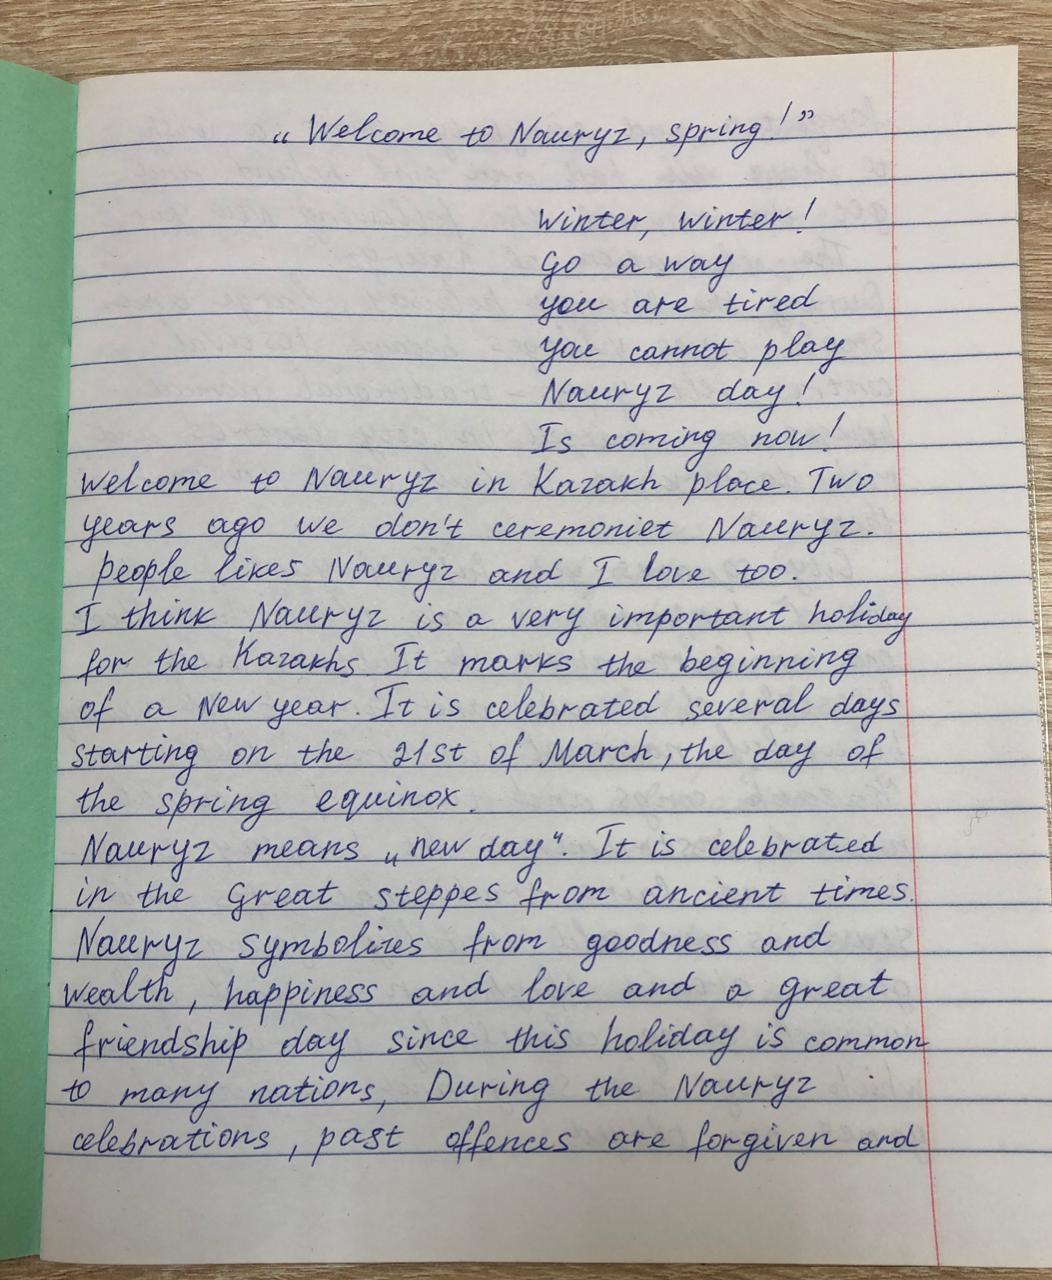 „ Welcome to Nauryz, spring!”
Winter, winter!
Go a way
you are tired
You cannot play
Nauryz day!
Is coming now!
Welcome to Nauryz in Kazakh place. Two
years ago we don't ceremoniet Nauryz.
people likes Nauryz and I love too.
I think Nauryz is a very important holiday
for the Kazakhs. It marks the beginning
of a New year. It is celebrated several days
starting on the 21st of March, the day of
the spring equinox.
Nauryz means „new day“. It is celebrated
in the Great steppes from ancient times.
Nauryz symbolizes from goodness and
wealth, happiness and love and a great
friendship day since this holiday is common
to many nations, During the Nauryz
celebrations, past offences are forgiven and